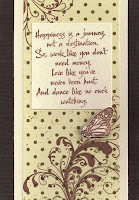 Happiness is a journey,
not a destination.
So, work like you don't
need money,
Love like you've
never been hurt,
And dance like no one's
watching.